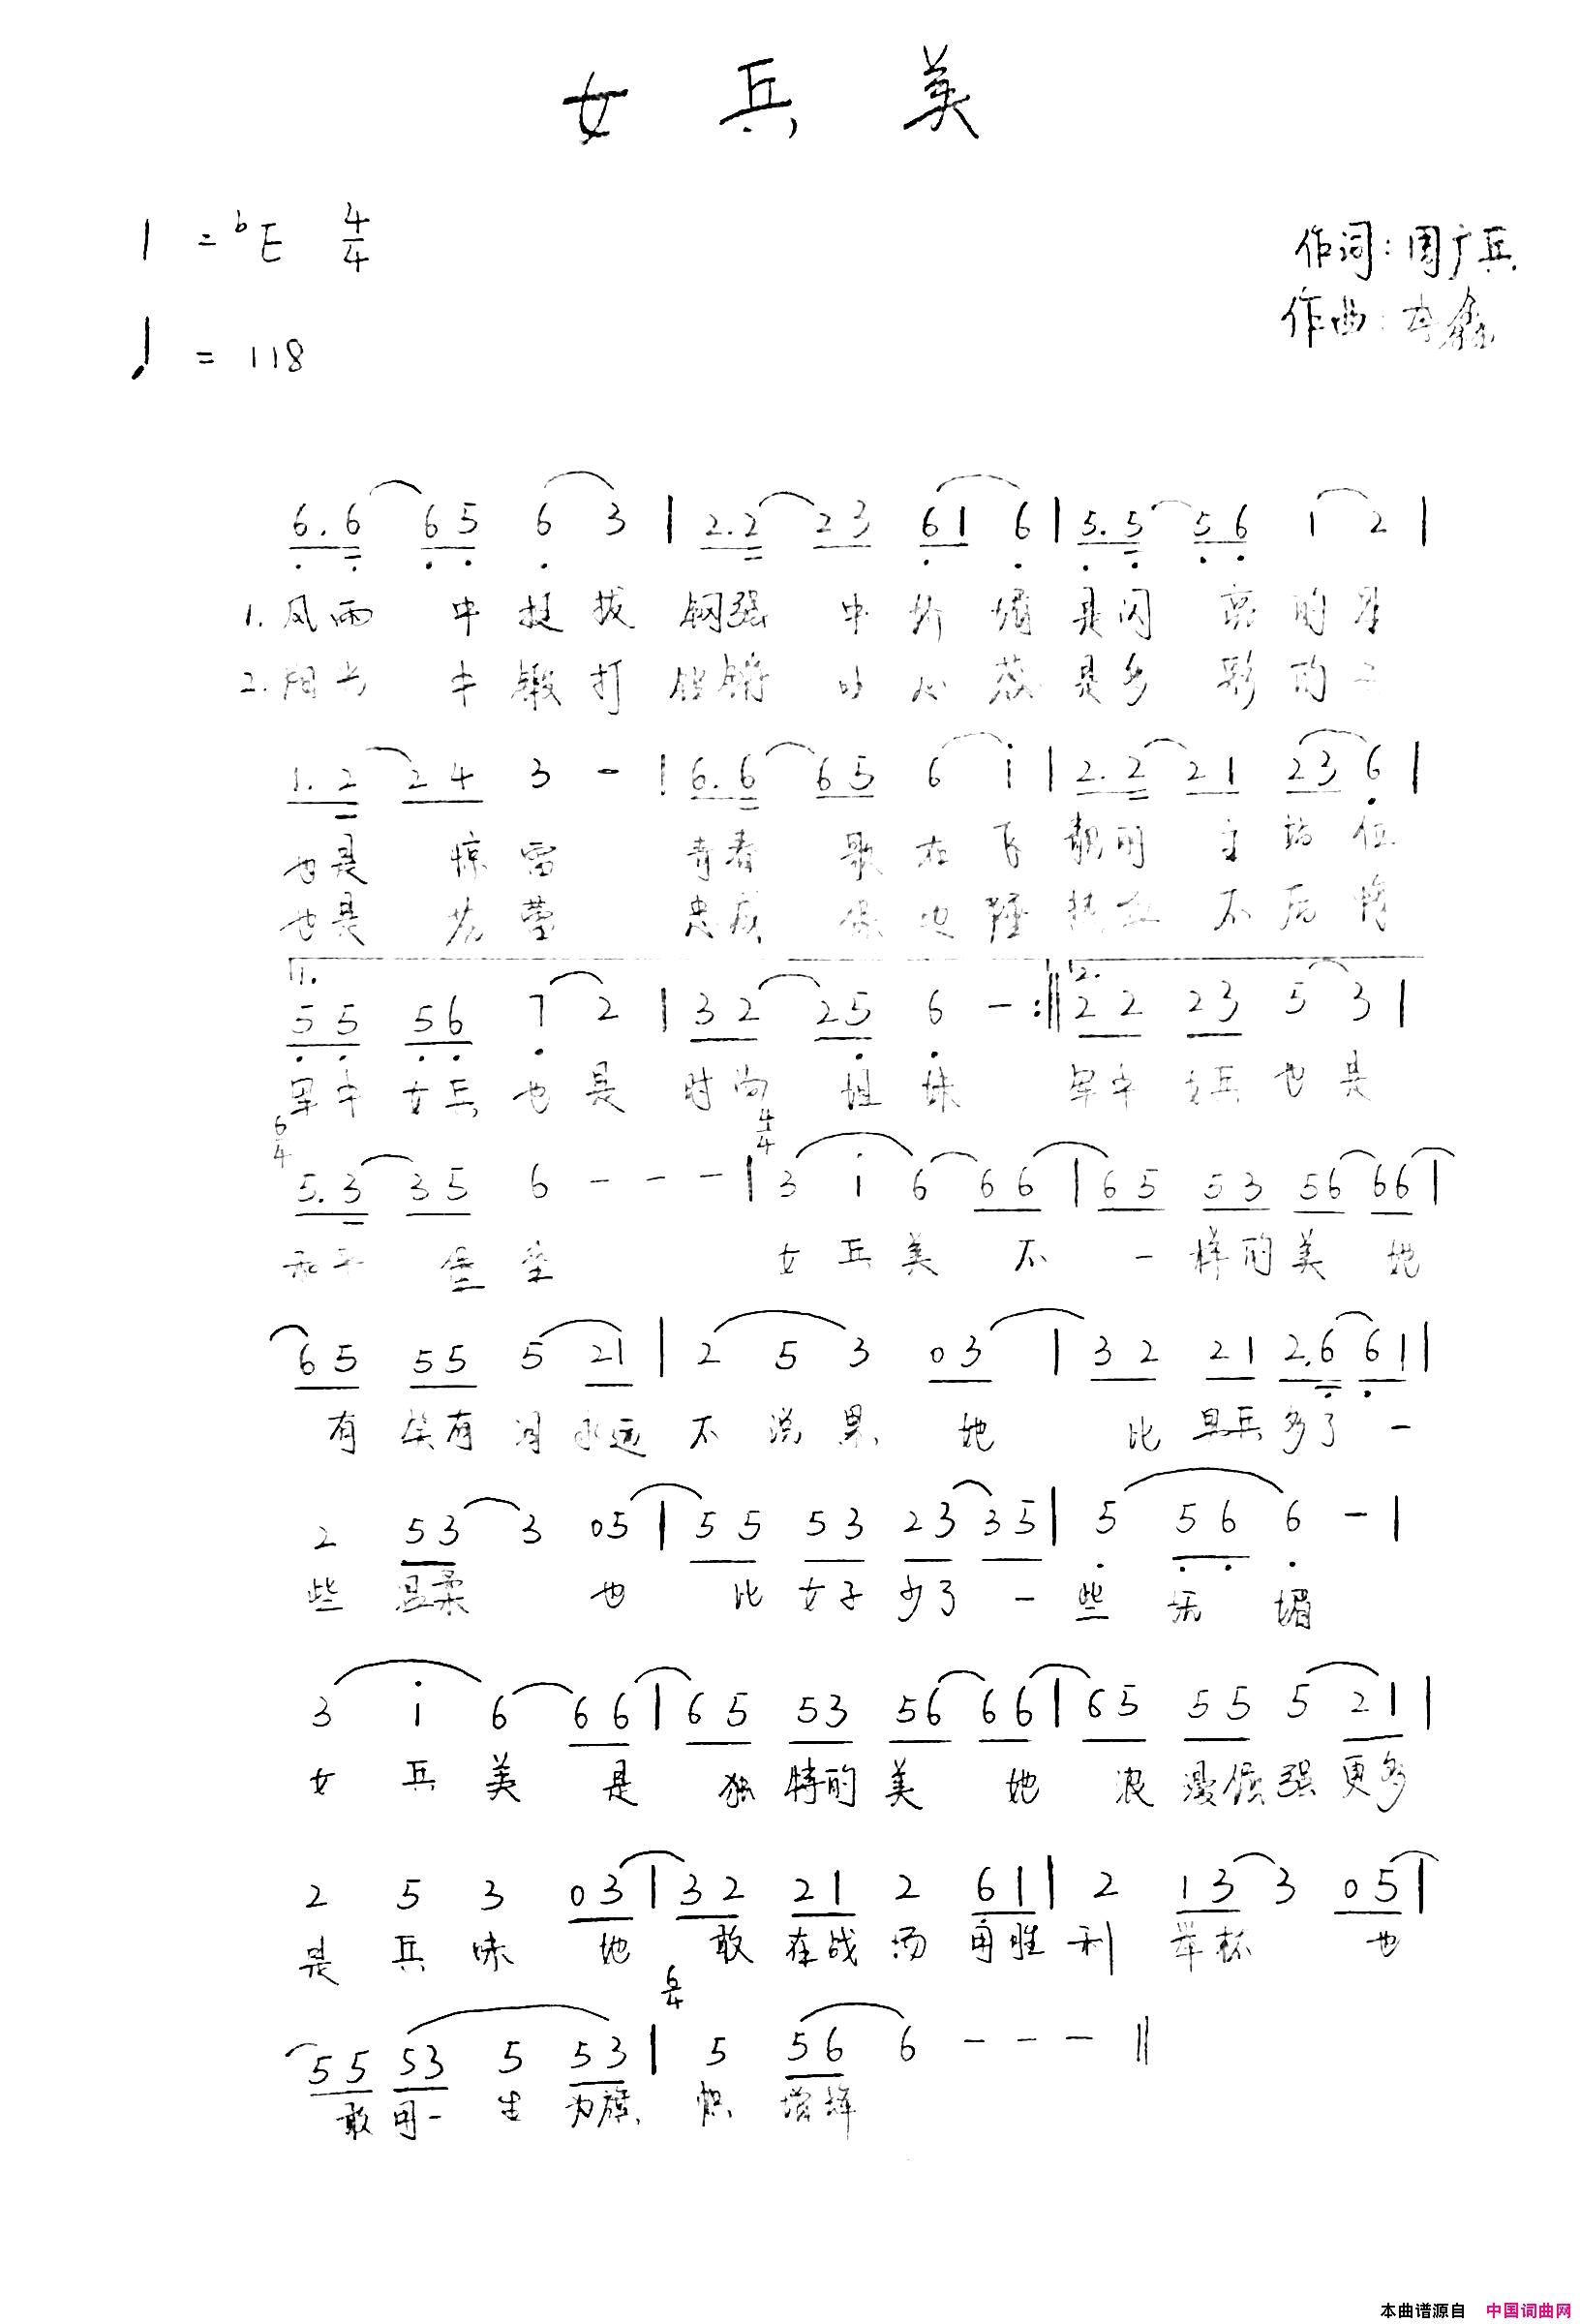 女兵美
1=♭E 4/4
作词:周广兵
作曲: 鑫
♩=118
6.6 65 6 3 | 2.2 23 61 6 | 5.5 56 1 2 |
1.风雨 中挺拔 钢强 中娇媚 是闪 亮的星
2.阳光 中锻打 铿锵 的心蕊 是多彩的
1.2 24 3 - | 6.6 65 6 i | 2.2 21 23 6 |
也是 惊雷 青春 歌在飞 靓丽 站位
也是 花蕾 忠诚 保边陲 热血 不后悔
1. 55 56 7 2 | 32 25 6 - :‖ 2. 22 23 5 3 |
军中女兵也是 时尚 姐妹 军中女兵也是
6/4 4/4
5.3 35 6 - - - | 3 i 6 66 | 65 53 56 66 |
和平 堡垒 女兵美 不 一样的美 她
65 55 5 21 | 2 5 3 03 | 32 21 2.6 61 |
有 有 永远 不说累 她 比男兵多了一
2 53 3 05 | 55 53 23 35 | 5 56 6 - |
些温柔 也 比女子少了一些妩媚
3 i 6 66 | 65 53 56 66 | 65 55 5 21 |
女兵美 是 独特的美 她 浪漫倔强更多
2 5 3 03 | 32 21 2 61 | 2 13 3 05 |
是兵味 她 敢在战场用胜利举杯 也
6/4
55 53 5 53 | 5 56 6 - - - ‖
敢用一生为旗帜增辉
本曲谱源自 中国词曲网